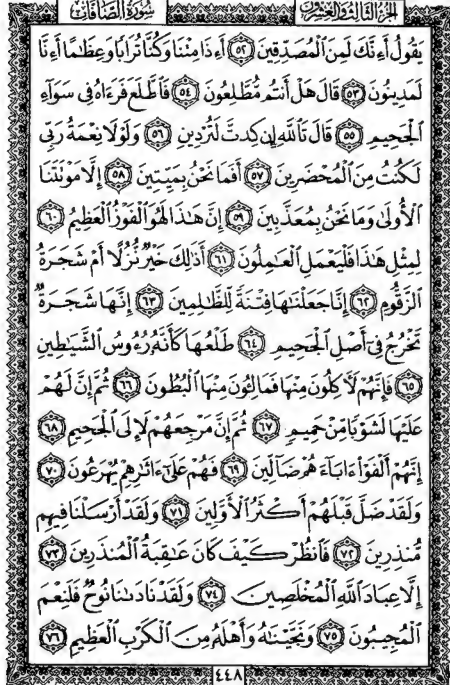 الجزء الثالث والعشرون سورة الصافات
يَقُولُ أَءِنَّكَ لَمِنَ ٱلْمُصَدِّقِينَ ٥٢ أَءِذَا مِتْنَا وَكُنَّا تُرَابًا وَعِظَٰمًا أَءِنَّا
لَمَدِينُونَ ٥٣ قَالَ هَلْ أَنتُم مُّطَّلِعُونَ ٥٤ فَٱطَّلَعَ فَرَءَاهُ فِي سَوَآءِ
ٱلْجَحِيمِ ٥٥ قَالَ تَٱللَّهِ إِن كِدتَّ لَتُرْدِينِ ٥٦ وَلَوْلَا نِعْمَةُ رَبِّي
لَكُنتُ مِنَ ٱلْمُحْضَرِينَ ٥٧ أَفَمَا نَحْنُ بِمَيِّتِينَ ٥٨ إِلَّا مَوْتَتَنَا
ٱلْأُولَىٰ وَمَا نَحْنُ بِمُعَذَّبِينَ ٥٩ إِنَّ هَٰذَا لَهُوَ ٱلْفَوْزُ ٱلْعَظِيمُ ٦٠
لِمِثْلِ هَٰذَا فَلْيَعْمَلِ ٱلْعَٰمِلُونَ ٦١ أَذَٰلِكَ خَيْرٌ نُّزُلًا أَمْ شَجَرَةُ
ٱلزَّقُّومِ ٦٢ إِنَّا جَعَلْنَٰهَا فِتْنَةً لِّلظَّٰلِمِينَ ٦٣ إِنَّهَا شَجَرَةٌ
تَخْرُجُ فِيٓ أَصْلِ ٱلْجَحِيمِ ٦٤ طَلْعُهَا كَأَنَّهُۥ رُءُوسُ ٱلشَّيَٰطِينِ
٦٥ فَإِنَّهُمْ لَءَاكِلُونَ مِنْهَا فَمَالِـُٔونَ مِنْهَا ٱلْبُطُونَ ٦٦ ثُمَّ إِنَّ لَهُمْ
عَلَيْهَا لَشَوْبًا مِّنْ حَمِيمٍ ٦٧ ثُمَّ إِنَّ مَرْجِعَهُمْ لَإِلَى ٱلْجَحِيمِ ٦٨
إِنَّهُمْ أَلْفَوْا۟ ءَابَآءَهُمْ ضَآلِّينَ ٦٩ فَهُمْ عَلَىٰٓ ءَاثَٰرِهِمْ يُهْرَعُونَ ٧٠
وَلَقَدْ ضَلَّ قَبْلَهُمْ أَكْثَرُ ٱلْأَوَّلِينَ ٧١ وَلَقَدْ أَرْسَلْنَا فِيهِم
مُّنذِرِينَ ٧٢ فَٱنظُرْ كَيْفَ كَانَ عَٰقِبَةُ ٱلْمُنذَرِينَ ٧٣
إِلَّا عِبَادَ ٱللَّهِ ٱلْمُخْلَصِينَ ٧٤ وَلَقَدْ نَادَىٰنَا نُوحٌ فَلَنِعْمَ
ٱلْمُجِيبُونَ ٧٥ وَنَجَّيْنَٰهُ وَأَهْلَهُۥ مِنَ ٱلْكَرْبِ ٱلْعَظِيمِ ٧٦
٤٤٨